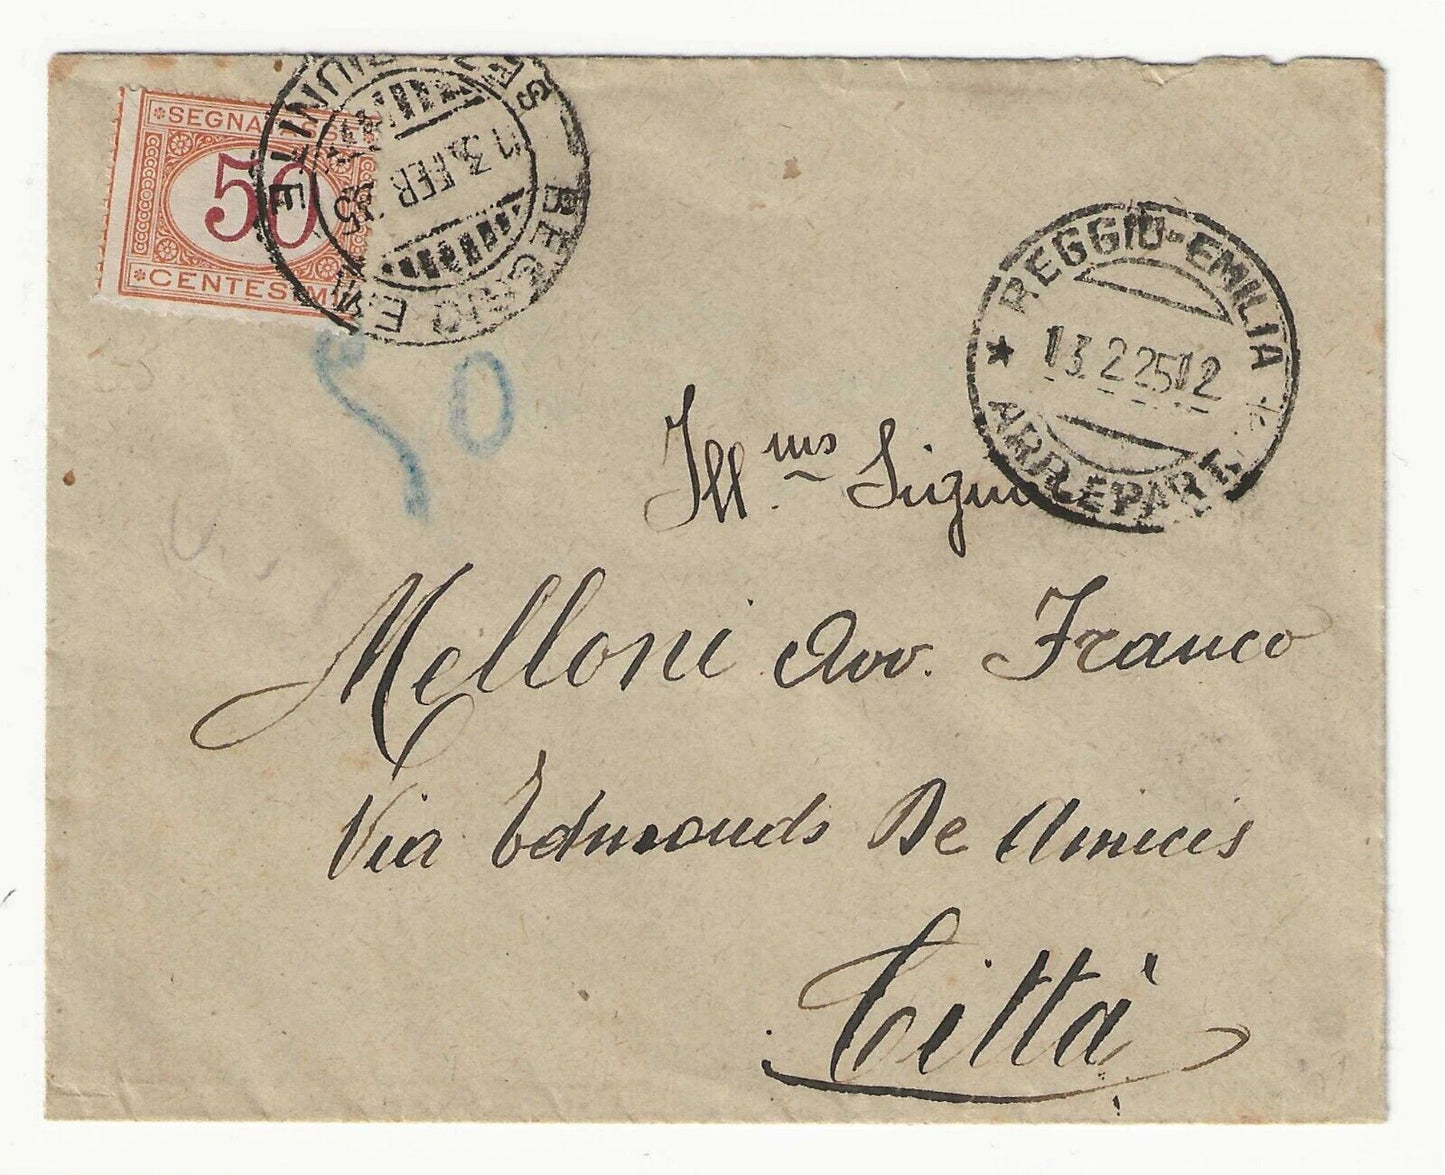 SEGNATASSE
50
CENTESIMI
REGGIO EMI
13.FER
REGGIO-EMILIA
13.2.25 12
ARR.E PART.
50
Ill.mo Signor
Melloni Avv. Franco
Via Edmondo De Amicis
Città